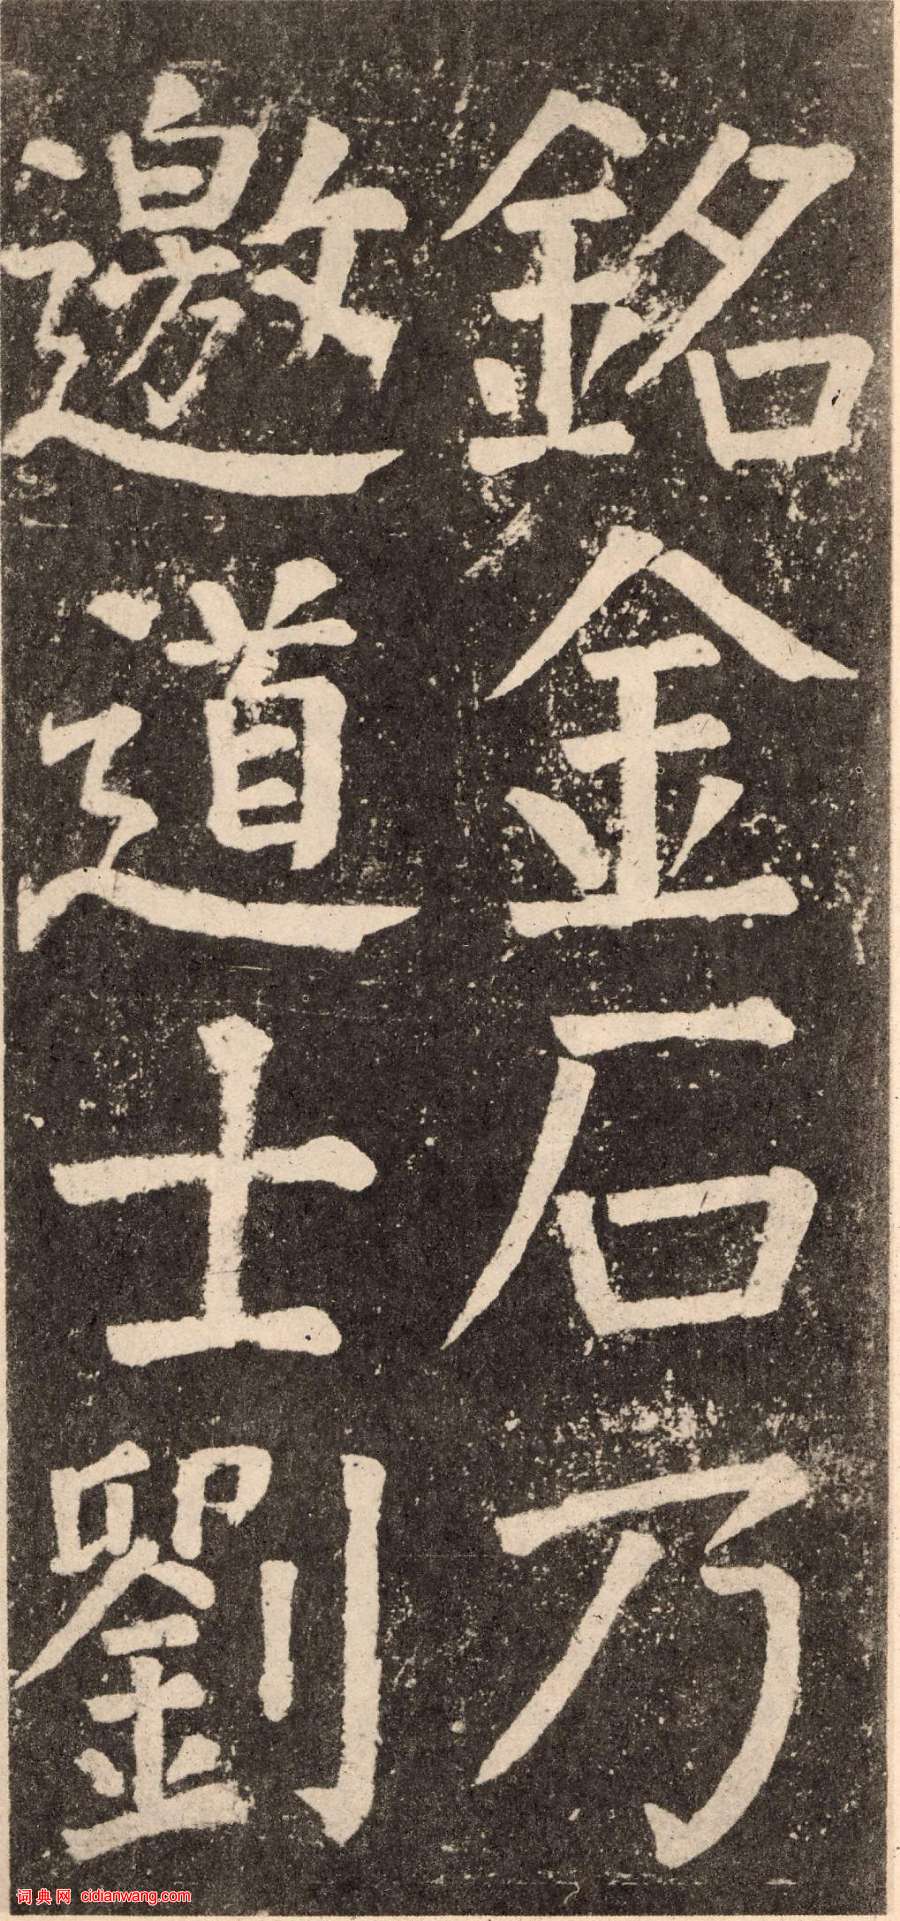 銘金石乃
邀道士劉
词典网 cidianwang.com